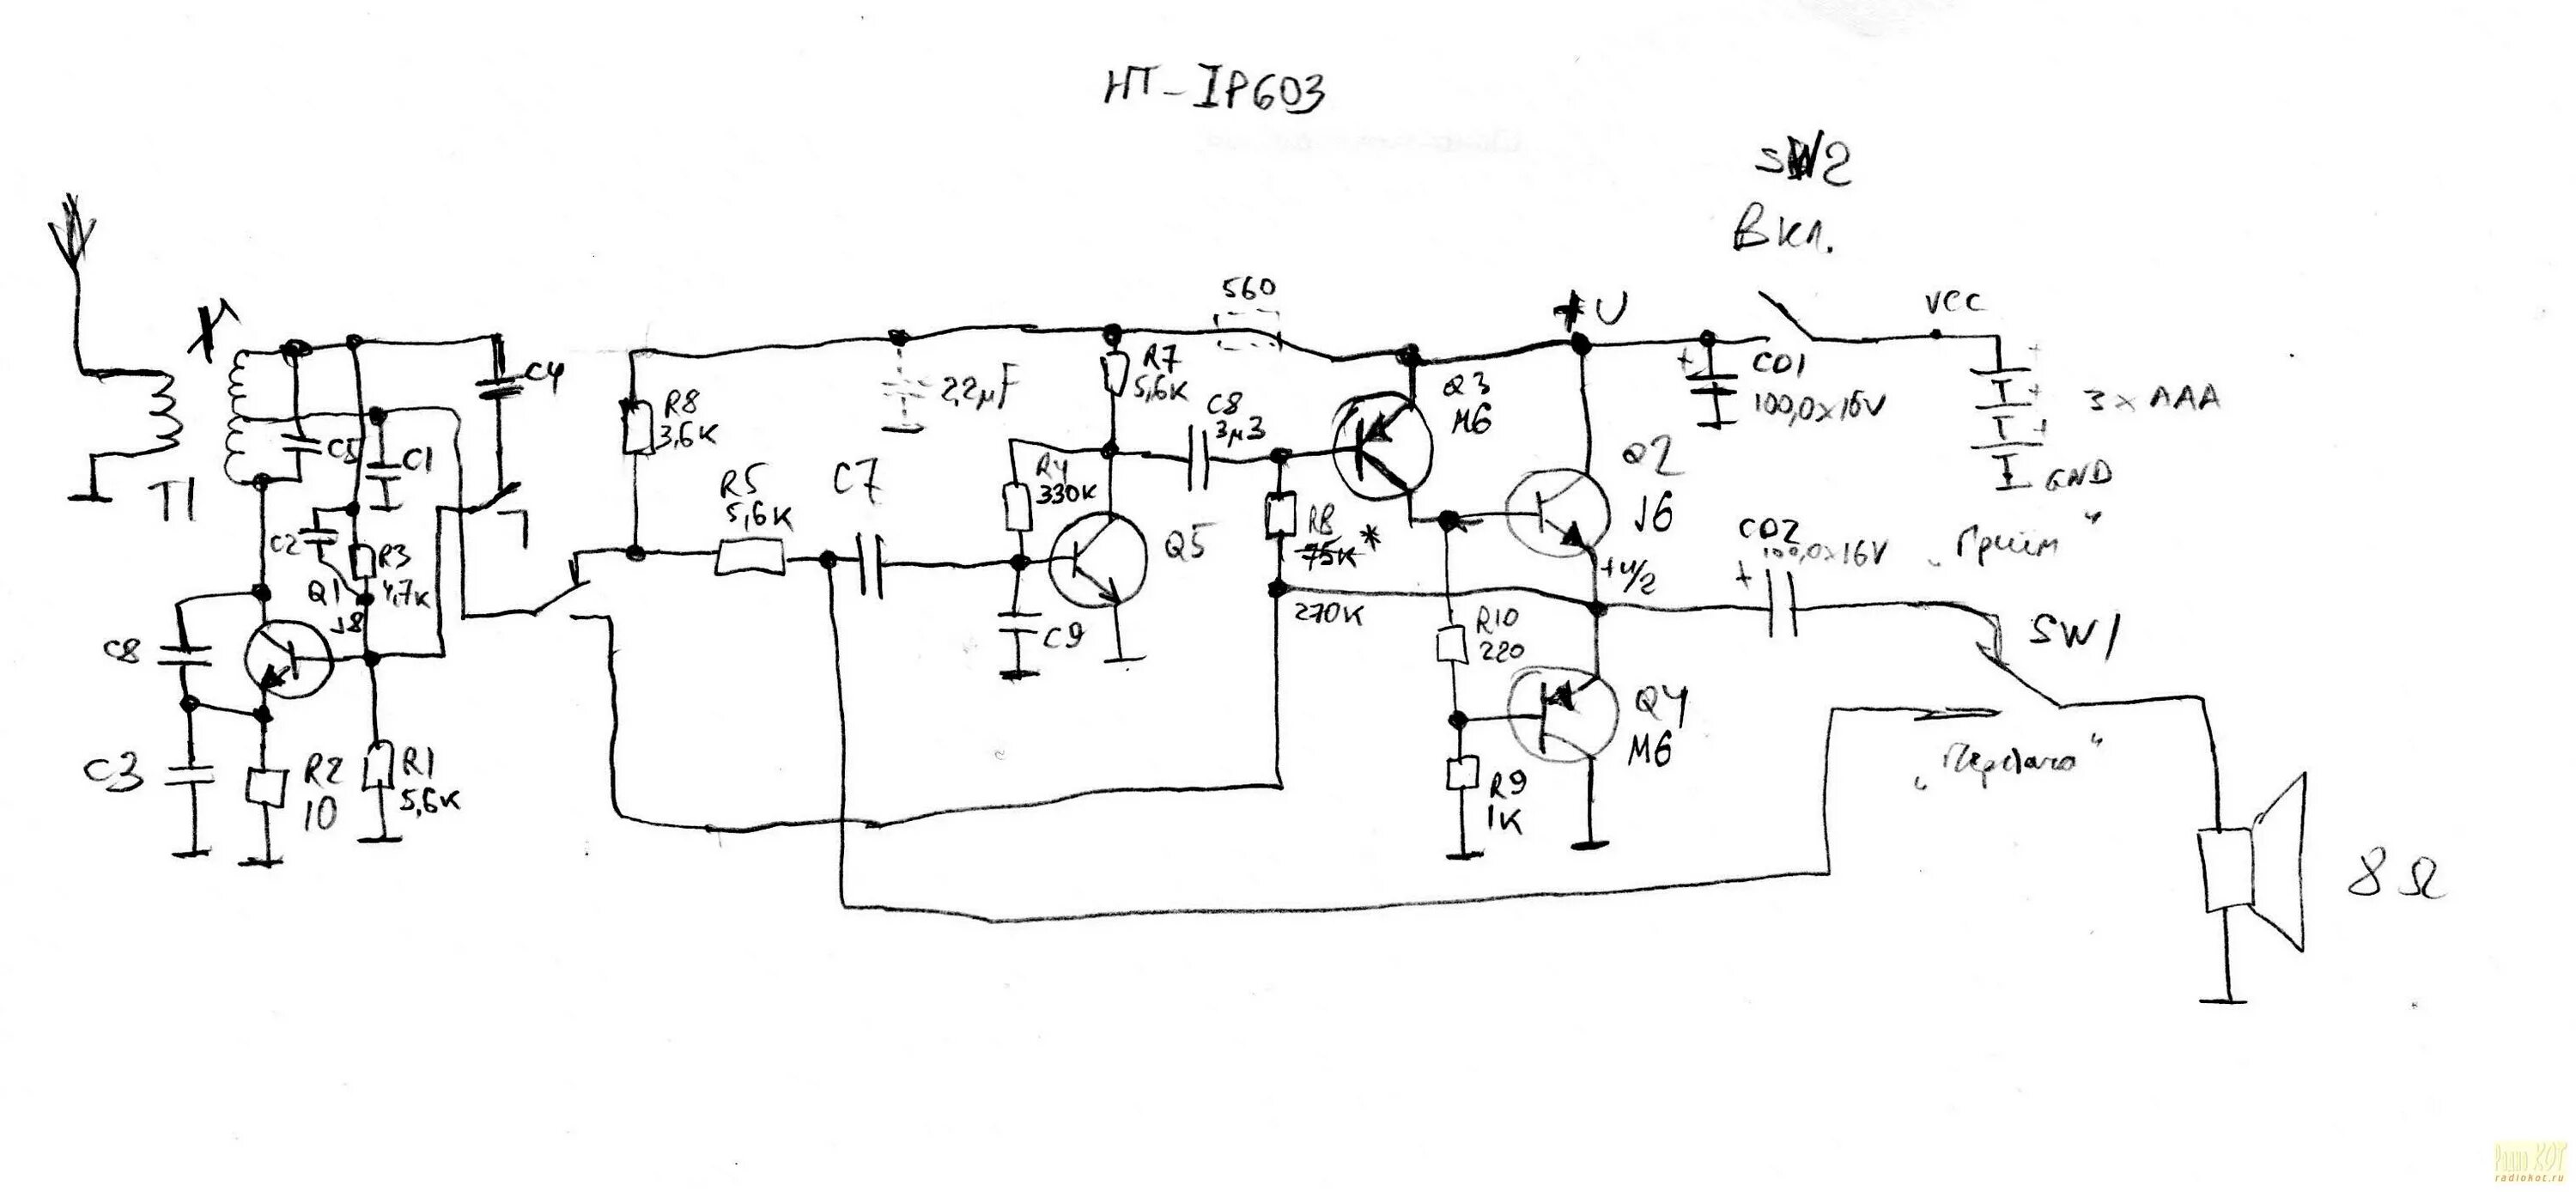 HT-IP603
SW2
Вкл.
560
+U
VCC
C4
R8
3,6K
2,2µF
R7
5,6K
C8
3µ3
Q3
M6
+
C01
100,0x16V
+
+
3 x AAA
GND
C5
C1
T1
R5
5,6K
C7
R4
330K
Q5
R8
75K *
270K
Q2
J6
+U/2
C02
100,0x16V
+
„Приём"
C2
R3
4,7K
Q1
J8
C9
R10
220
SW1
C8
Q4
M6
„Передача"
C3
R2
10
R1
5,6K
R9
1K
8 Ω
Радио КОТ
radiokot.ru